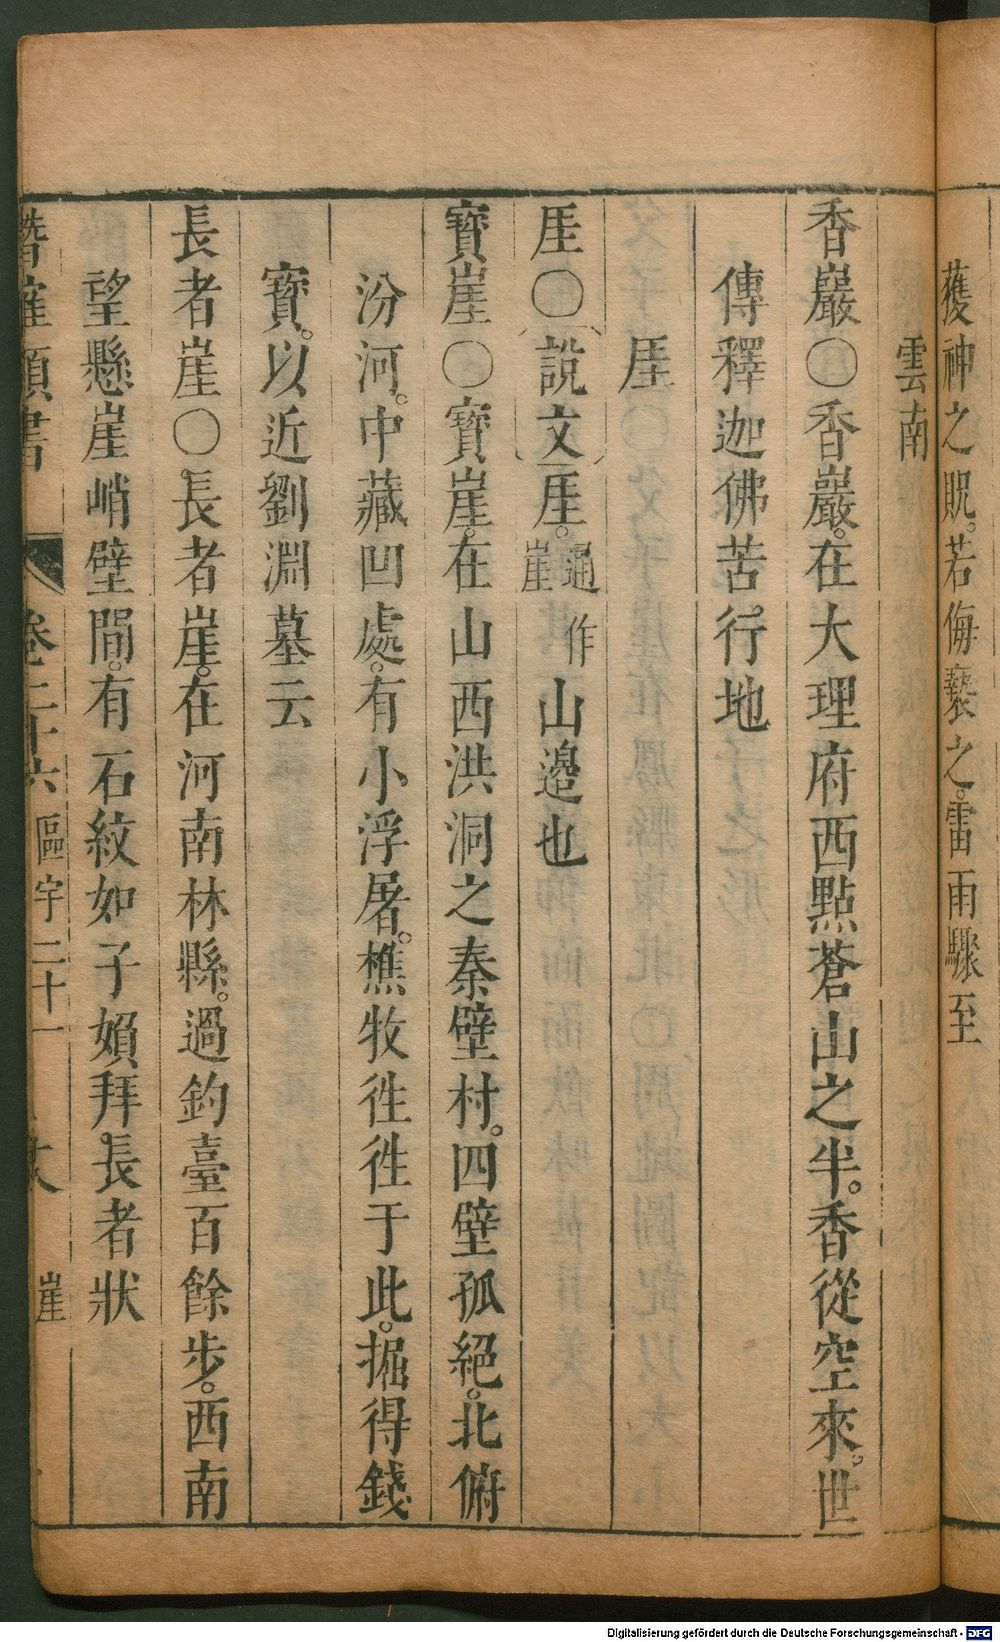 蒦神之貺。若侮褻之。雷雨驟至
雲南
香巖〇香巖。在大理府西點蒼山之半。香從空來。世
傳釋迦佛苦行地
厓
厓〇說文厓。通作崖山邉也
寶崖〇寶崖。在山西洪洞之秦壁村。四壁孤絕。北俯
汾河。中藏凹處。有小浮屠。樵牧徃徃于此。掘得錢
寳。以近劉淵墓云
長者崖〇長者崖。在河南林縣。過釣臺百餘步。西南
望懸崖峭壁間。有石紋如子嬪拜長者狀
潛確類書 卷二十六 區宇二十一 崖
Digitalisierung gefördert durch die Deutsche Forschungsgemeinschaft - DFG